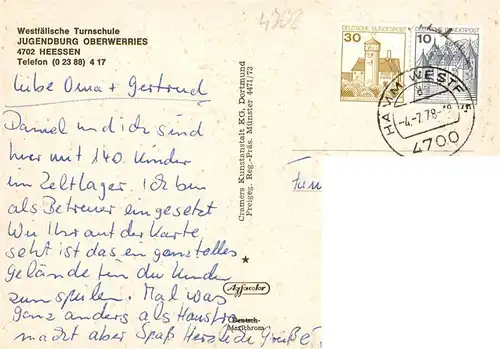 4702
Westfälische Turnschule
JUGENDBURG OBERWERRIES
4702 HEESSEN
Telefon (0 23 88) 4 17
Liebe Oma + Gertrud
Daniel und ich sind
hier mit 140 Kinder
im Zeltlager. Ich bin
als Betreuer eingesetzt
Wie Ihr auf der Karte
seht ist das ein ganz tolles
Gelände für die Kinder
zum spielen. Mal was
ganz anders als
macht aber Spaß Herzliche Grüße
Cramers Kunstanstalt KG. Dortmund
Freigeg. Reg.-Präs. Münster 4471/73
Agfacolor
Deutsch-
Mexithrom
DEUTSCHE BUNDESPOST
30
DEUTSCHE BUNDESPOST
10
HAMM WESTF
-4.-7.78-
4700